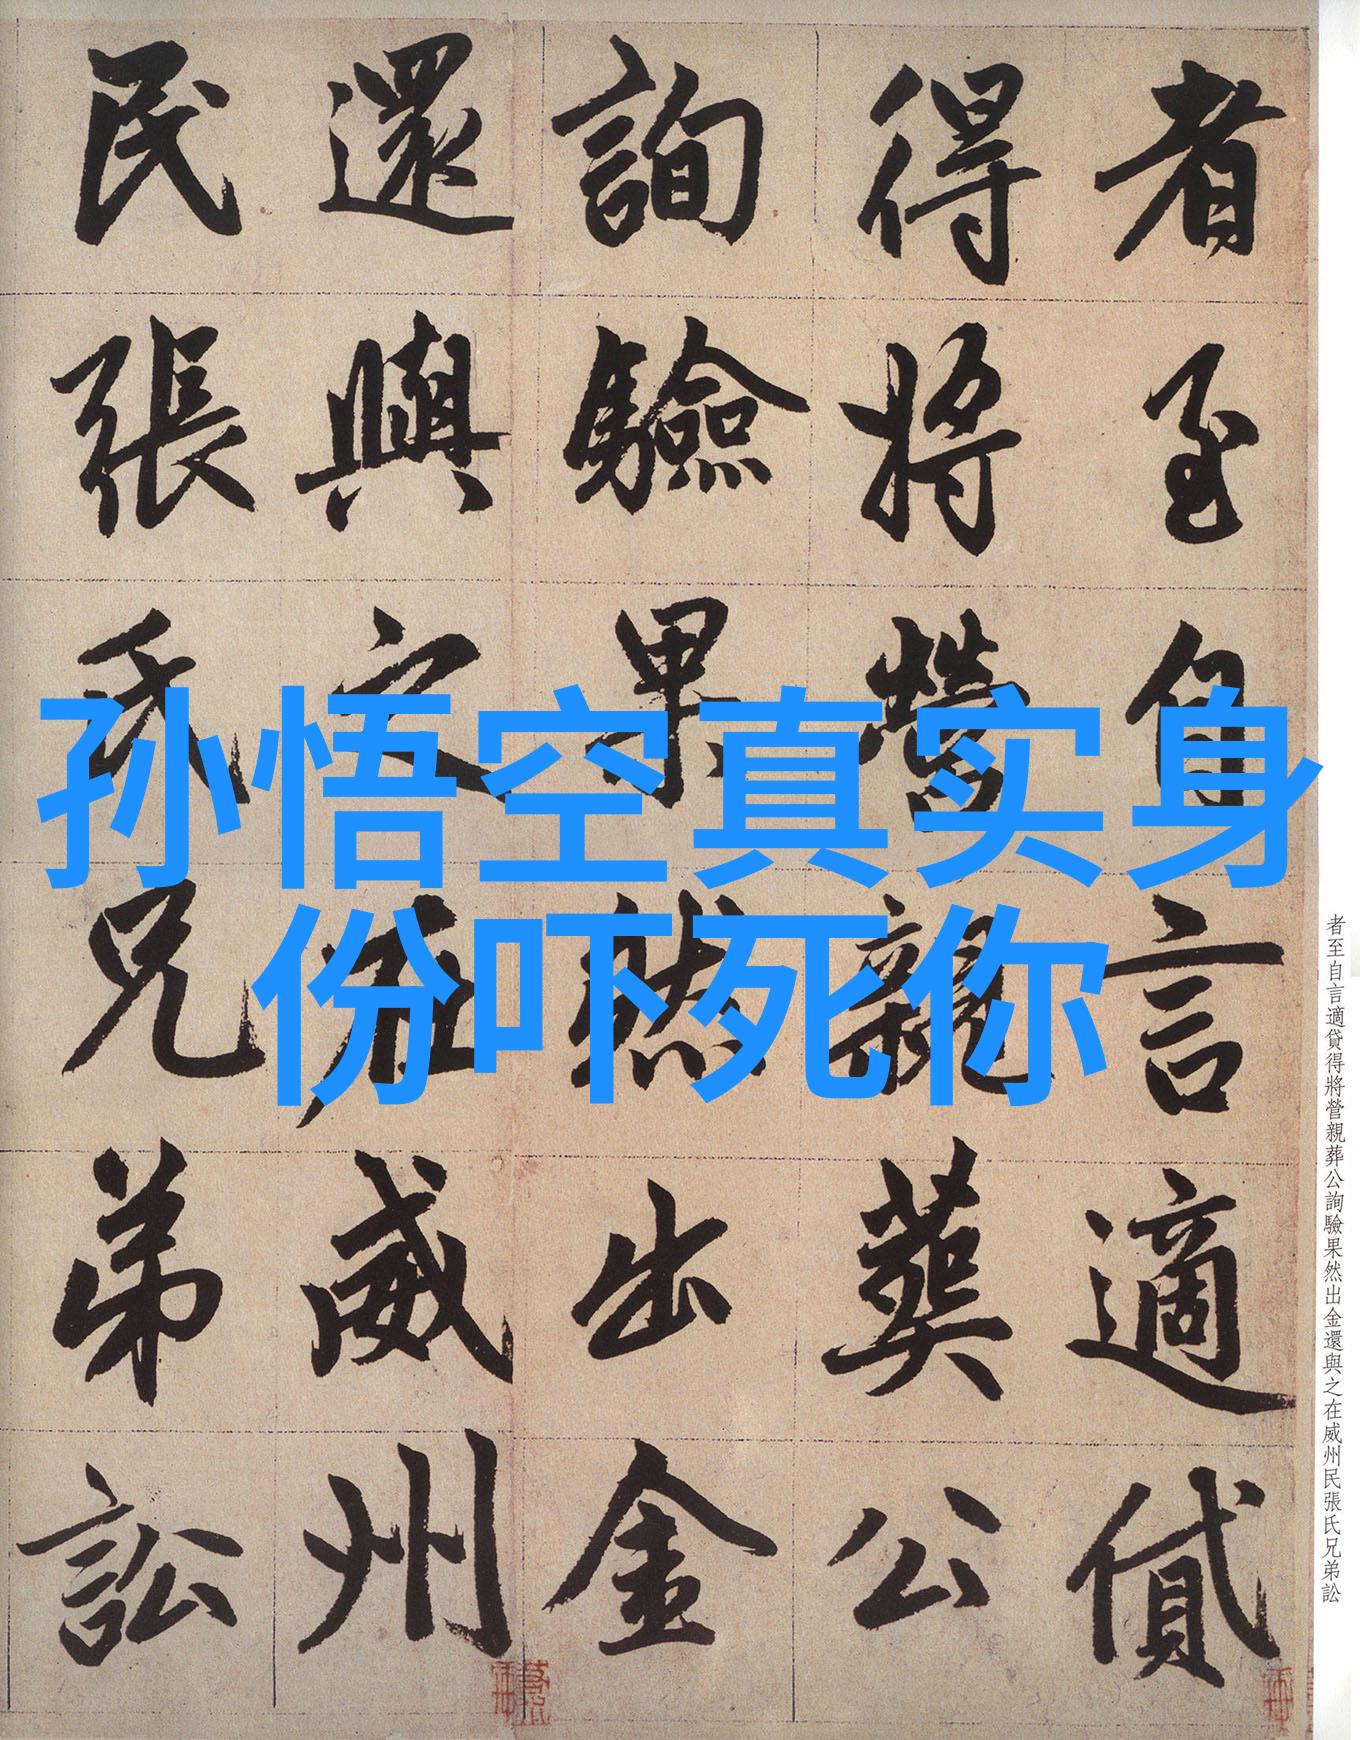 者至自言適貸
得將營親葬公
詢驗果然出金
還與之在威州
民張氏兄弟訟
孙悟空真实身
份吓死你
者至自言適貸得將營親葬公詢驗果然出金還與之在威州民張氏兄弟訟